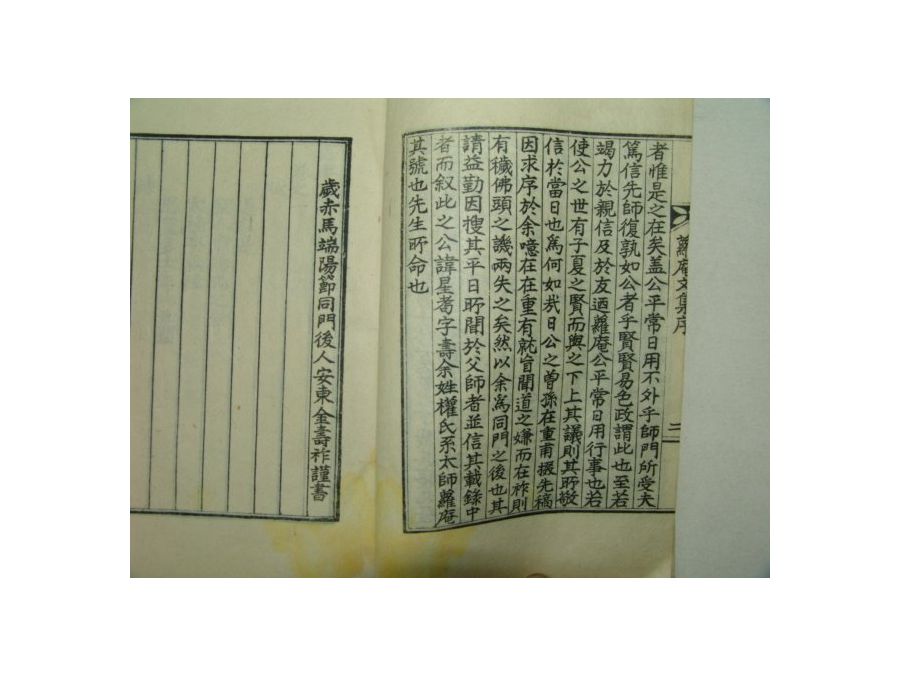 蘿庵文集序
二
者惟是之在矣盖公平常日用不外乎師門所受夫
篤信先師復孰如公者乎賢賢易色政謂此也至若
竭力於親信及於友迺蘿庵公平常日用行事也若
使公之世有子夏之賢而與之下上其議則其所敬
信於當日也爲何如哉日公之曾孫在重甫掇先稿
因求序於余噫在在重有就盲聞道之嫌而在祚則
有穢佛頭之譏兩失之矣然以余爲同門之後也其
請益勤因搜其平日所聞於父師者並信其載錄中
者而叙此之公諱星耈字壽余姓權氏系太師蘿庵
其號也先生所命也
歲赤馬端陽節同門後人安東金壽祚謹書